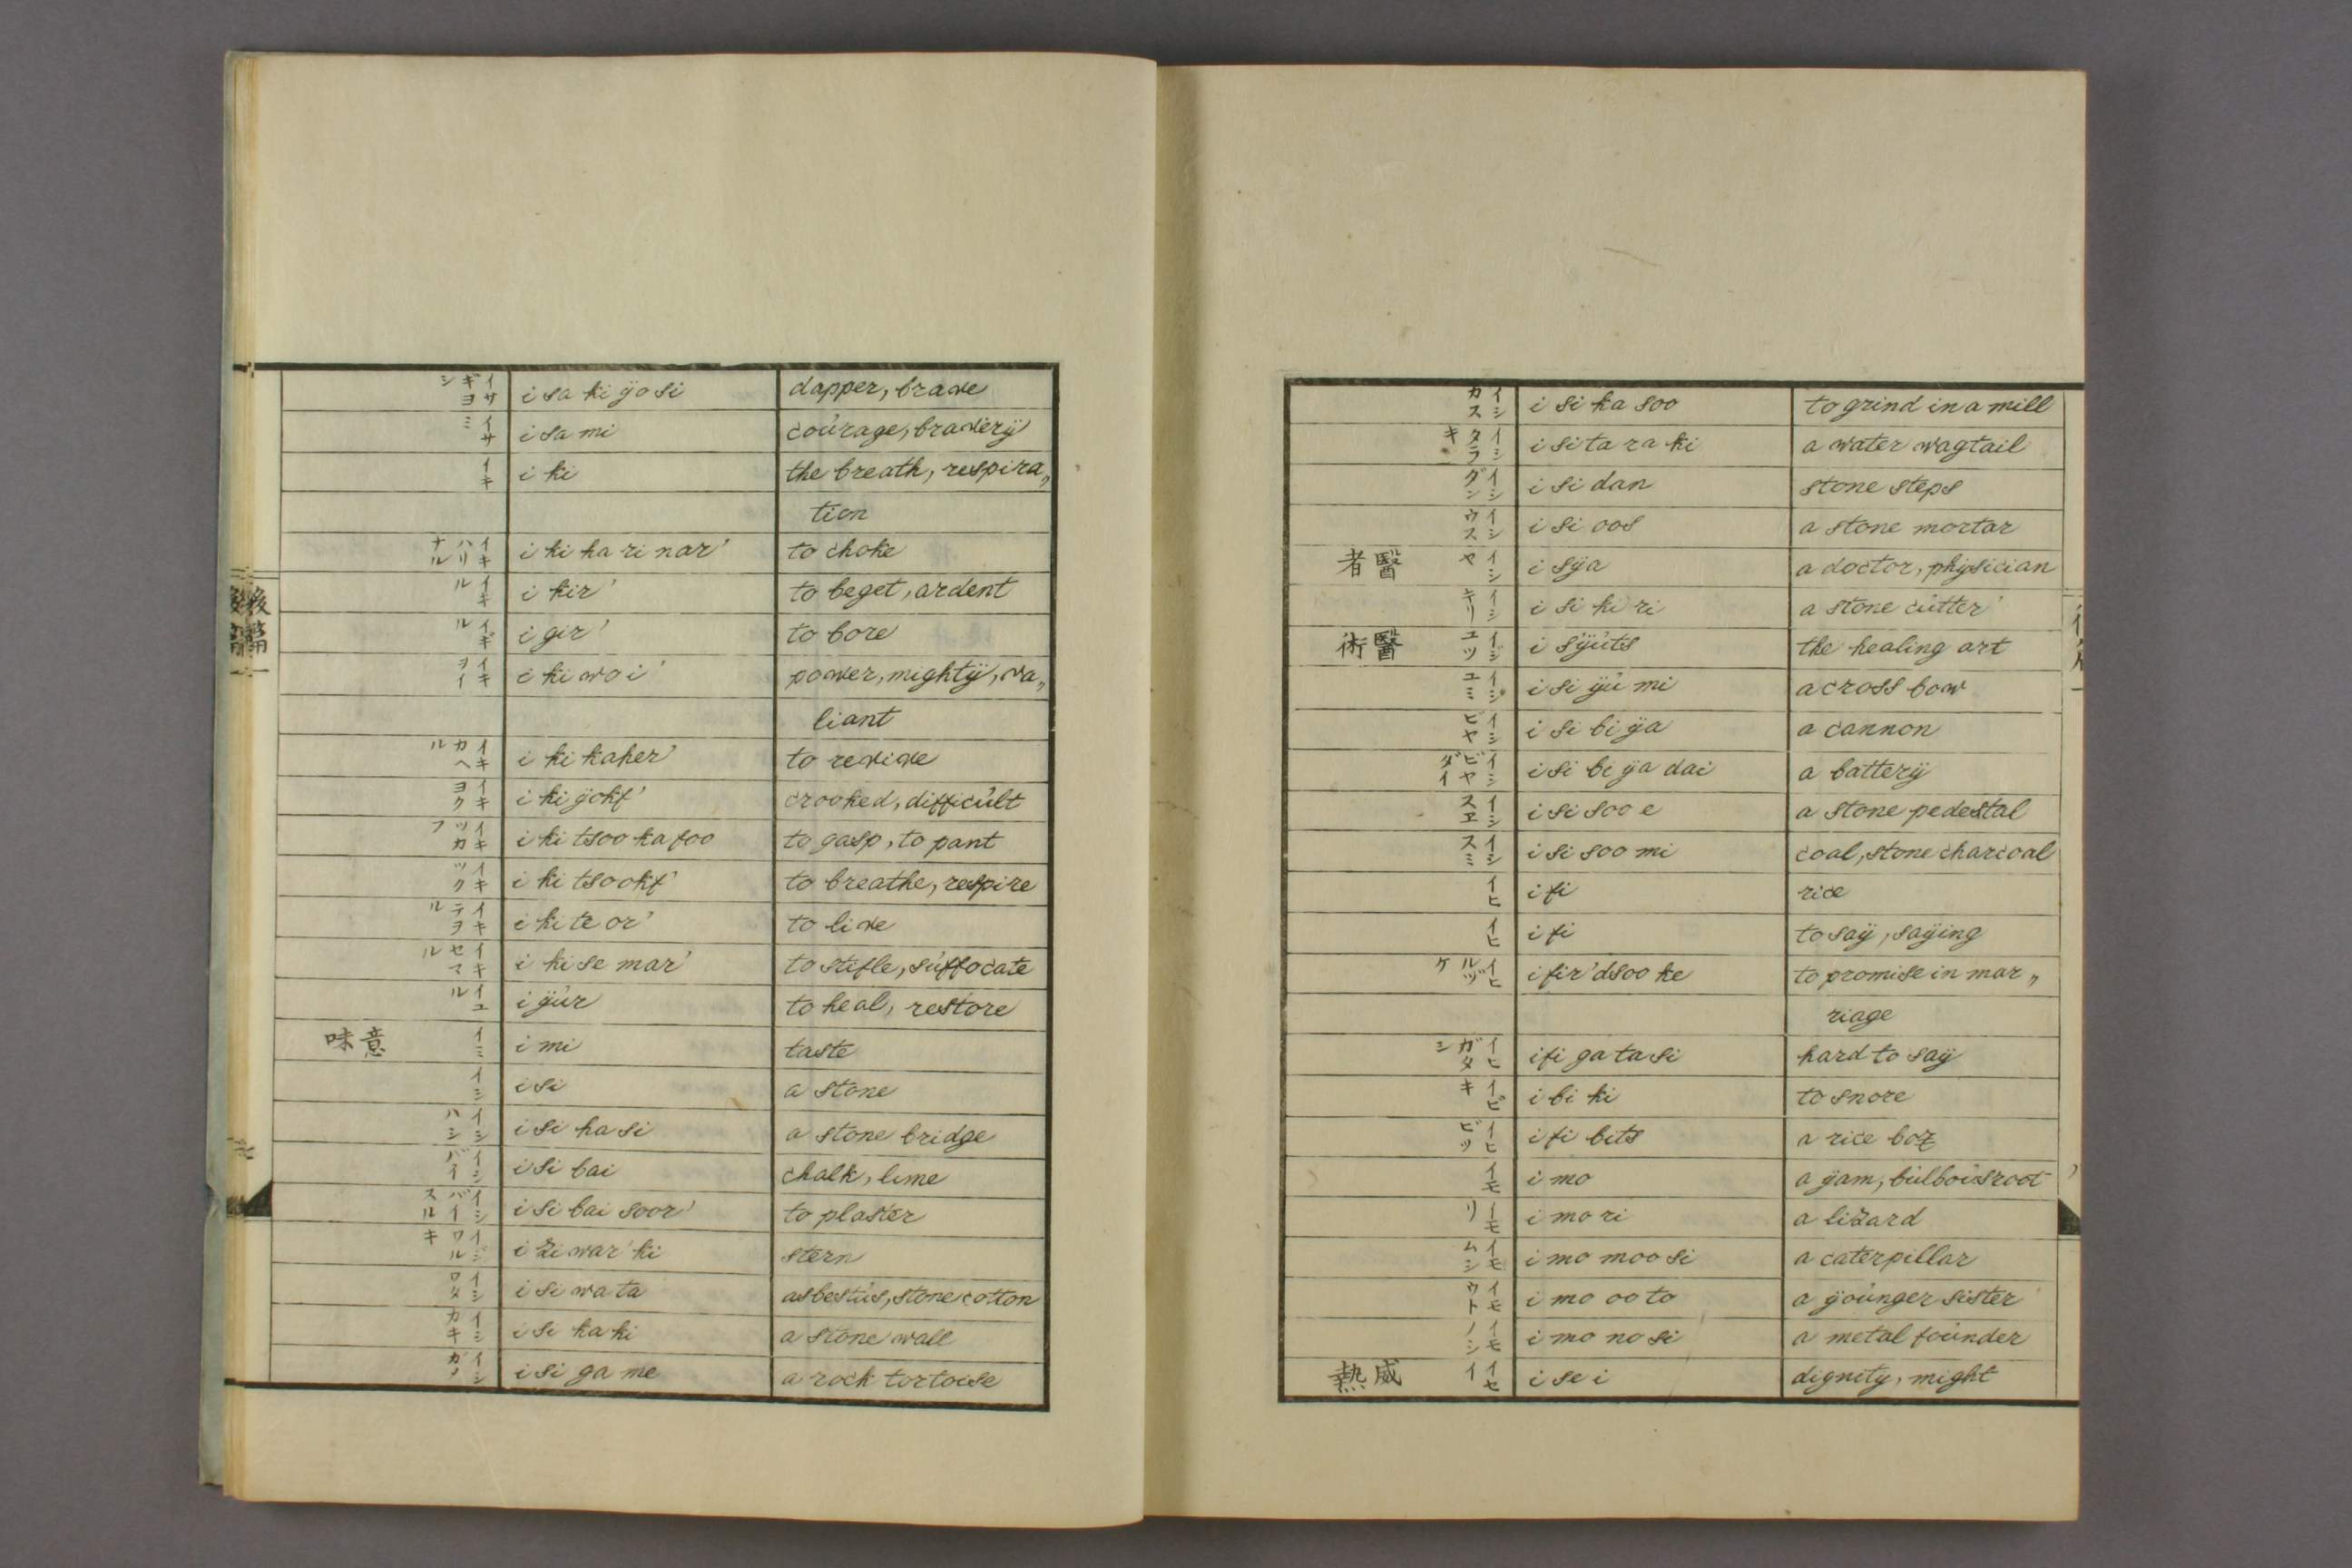 イサギヨシ i sa ki ÿo si dapper, brave
イサミ i sa mi coúrage, braverÿ
イキ i ki the breath, respira„
tion
イキハリナル i ki ha ri nar' to choke
イキル i kir' to beget, ardent
イギル i gir' to bore
イキヲイ i ki wo i' power, mightÿ, va„
liant
イキカヘル i ki kaher' to revive
イキヨク i ki ÿokf' crooked, difficúlt
イキツカフ i ki tsoo ka foo to gasp, to pant
イキツク i ki tsookf' to breathe, respire
イキテヲル i ki te or' to live
イキセマル i ki se mar' to stifle, súffocate
イユル i ÿúr to heal, restore
意味 イミ i mi taste
イシ i si a stone
イシハシ i si ha si a stone bridge
イシバイ i si bai chalk, lime
イシバイスル i si bai soor' to plaster
イジワルキ i zi war' ki stern
イシワタ i si wa ta asbestús, stone cotton
イシカキ i si ka ki a stone wall
イシガメ i si ga me a rock tortoise
後篇
イシカス i si ka soo to grind in a mill
イシタラキ i si ta ra ki a water wagtail
イシダン i si dan stone steps
イシウス i si oos a stone mortar
醫者 イシヤ i sÿa a doctor, phÿsician
イシキリ i si ki ri a stone cútter
醫術 イジユツ i sÿúts the healing art
イシユミ i si ÿú mi a cross bow
イシビヤ i si bi ÿa a cannon
イシビヤダイ i si bi ÿa dai a batterÿ
イシスヱ i si soo e a stone pedestal
イシスミ i si soo mi coal, stone charcoal
イヒ i fi rice
イヒ i fi to saÿ, saÿing
イヒルヅケ i fir' dsoo ke to promise in mar„
riage
イヒガタシ i fi ga ta si hard to saÿ
イビキ i bi ki to snore
イヒビツ i fi bits a rice box
イモ i mo a ÿam, búlboús root
イモリ i mo ri a lizard
イモムシ i mo moo si a caterpillar
イモウト i mo oo to a ÿoúnger sister
イモノシ i mo no si a metal foúnder
威熱 イセイ i se i dignity, might